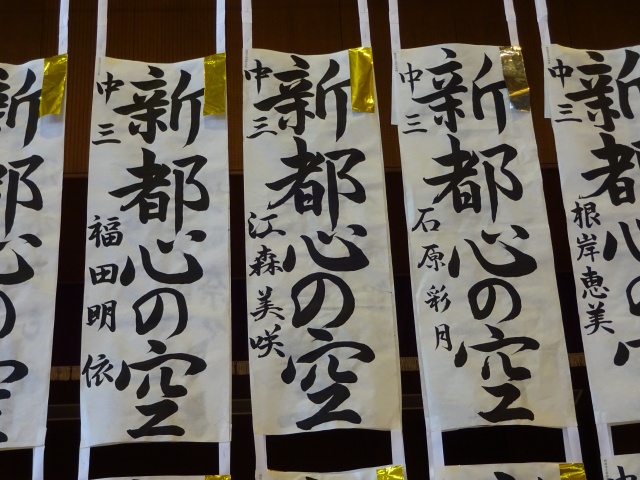 新都心の空
中三
根岸恵美
新都心の空
中三
石原彩月
新都心の空
中三
江森美咲
新都心の空
中三
福田明依
新都心の空